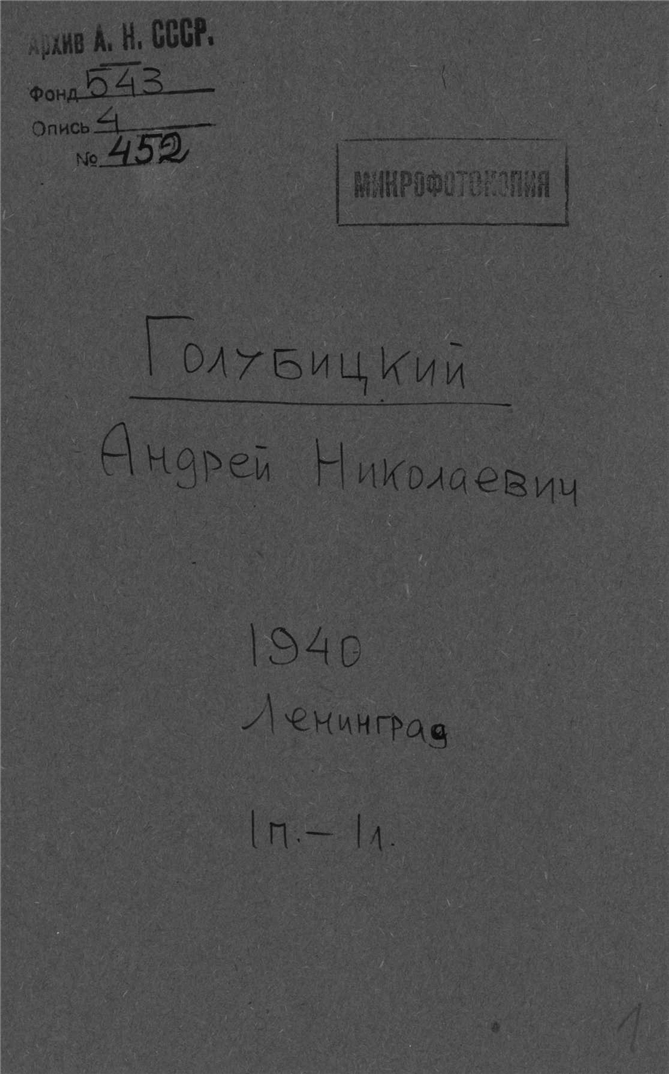 Архив А. Н. СССР.
Фонд 543
Опись 4
№ 452
МИКРОФОТОКОПИЯ
Голубицкий
Андрей Николаевич
1940
Ленинград
1п. – 1л.
1